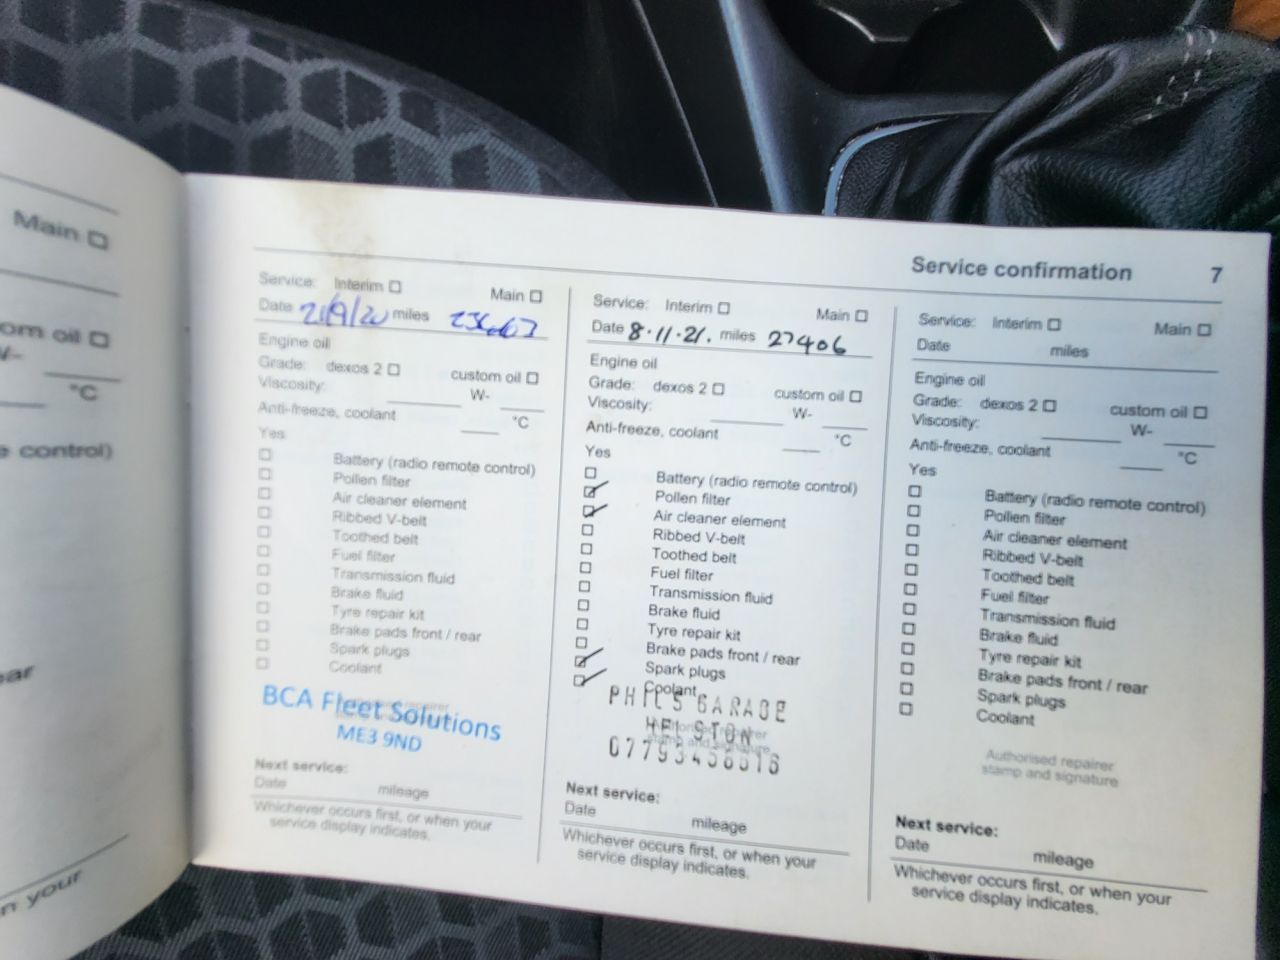 Main ☐
om oil ☐
W-
°C
control)
ear
n your
Service confirmation 7
Service: Interim ☐ Main ☐
Date 21/9/20 miles
Engine oil
Grade: dexos 2 ☐ custom oil ☐
Viscosity: W-
Anti-freeze, coolant °C
Yes
☐ Battery (radio remote control)
☐ Pollen filter
☐ Air cleaner element
☐ Ribbed V-belt
☐ Toothed belt
☐ Fuel filter
☐ Transmission fluid
☐ Brake fluid
☐ Tyre repair kit
☐ Brake pads front / rear
☐ Spark plugs
☐ Coolant
BCA Fleet Solutions
ME3 9ND
Next service:
Date mileage
Whichever occurs first, or when your
service display indicates.
Service: Interim ☐ Main ☐
Date 8.11.21. miles 27406
Engine oil
Grade: dexos 2 ☐ custom oil ☐
Viscosity: W-
Anti-freeze, coolant °C
Yes
☐ Battery (radio remote control)
☑ Pollen filter
☑ Air cleaner element
☐ Ribbed V-belt
☐ Toothed belt
☐ Fuel filter
☐ Transmission fluid
☐ Brake fluid
☐ Tyre repair kit
☐ Brake pads front / rear
☑ Spark plugs
☑ Coolant
PHIL'S GARAGE
HELSTON
Authorised repairer
stamp and signature
Next service:
Date mileage
Whichever occurs first, or when your
service display indicates.
Service: Interim ☐ Main ☐
Date miles
Engine oil
Grade: dexos 2 ☐ custom oil ☐
Viscosity: W-
Anti-freeze, coolant °C
Yes
☐ Battery (radio remote control)
☐ Pollen filter
☐ Air cleaner element
☐ Ribbed V-belt
☐ Toothed belt
☐ Fuel filter
☐ Transmission fluid
☐ Brake fluid
☐ Tyre repair kit
☐ Brake pads front / rear
☐ Spark plugs
☐ Coolant
Authorised repairer
stamp and signature
Next service:
Date mileage
Whichever occurs first, or when your
service display indicates.